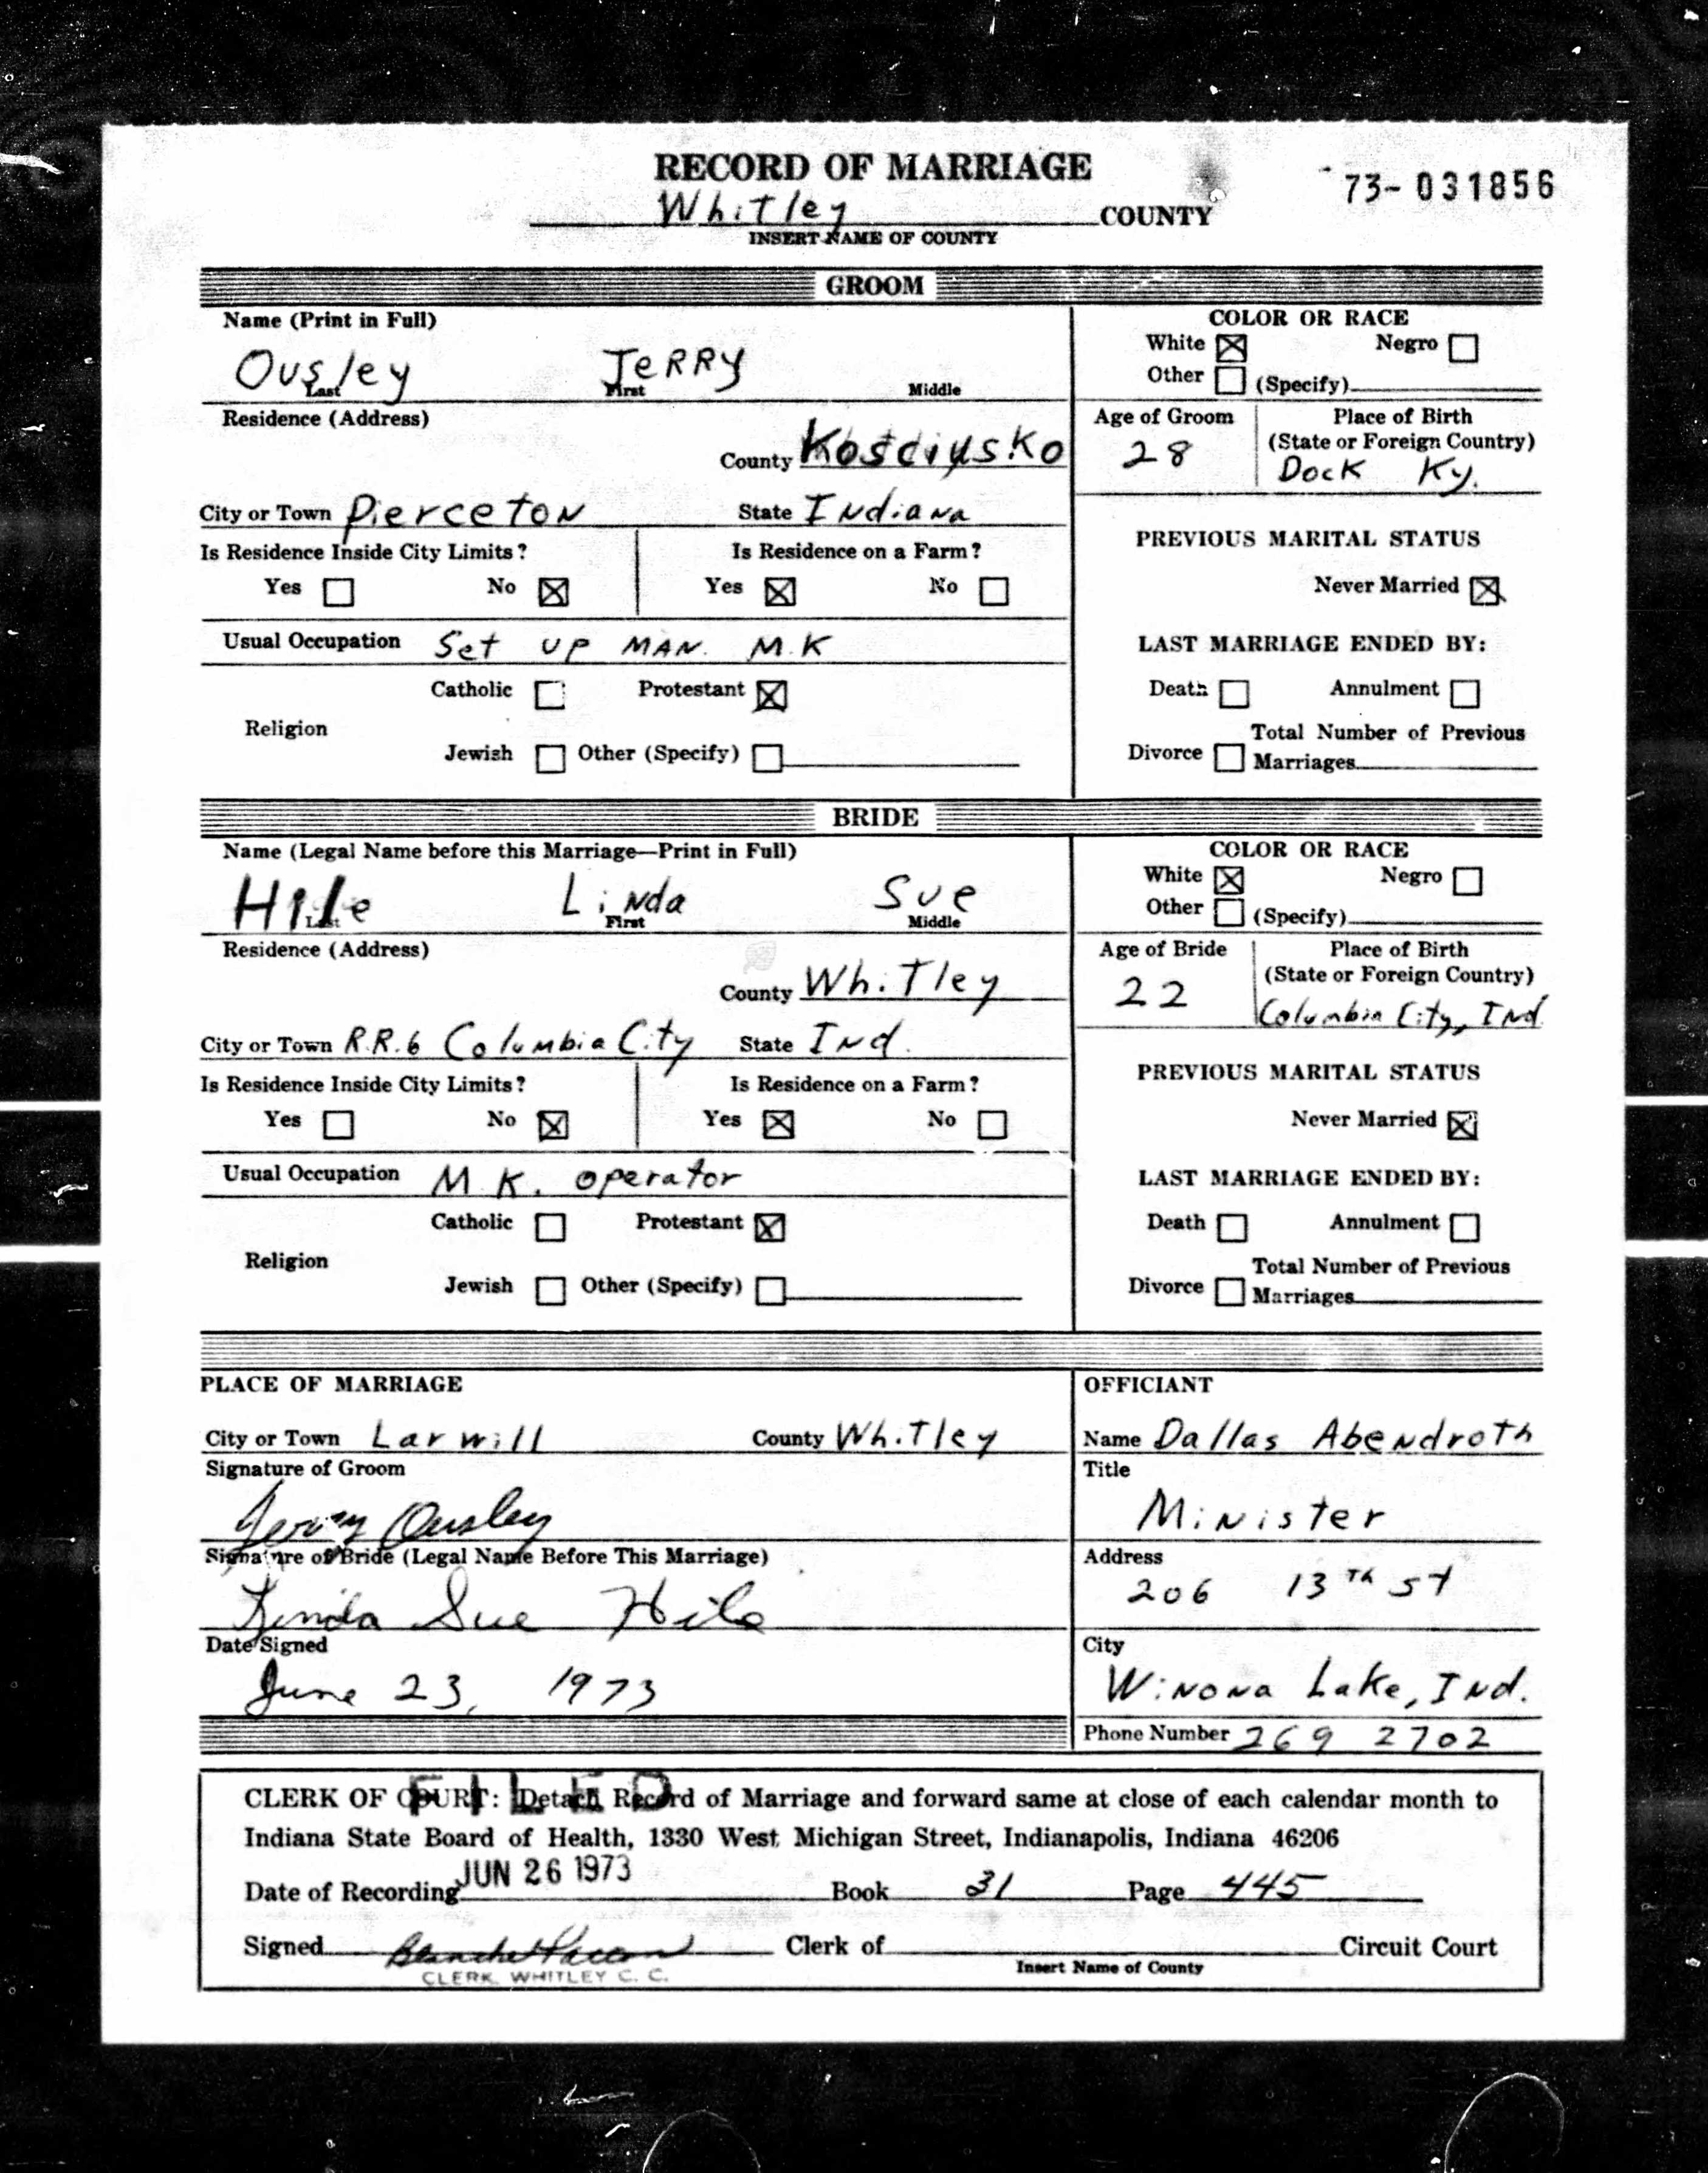 RECORD OF MARRIAGE
73-031856
Whitley COUNTY
INSERT NAME OF COUNTY
GROOM
Name (Print in Full)
Ousley JERRY
Last First Middle
COLOR OR RACE
White ☒ Negro ☐
Other ☐ (Specify)
Residence (Address)
County Kosciusko
Age of Groom
28
Place of Birth
(State or Foreign Country)
Dock Ky.
City or Town Pierceton State Indiana
Is Residence Inside City Limits? Is Residence on a Farm?
Yes ☐ No ☒ Yes ☒ No ☐
PREVIOUS MARITAL STATUS
Never Married ☒
Usual Occupation Set up MAN. M.K
LAST MARRIAGE ENDED BY:
Catholic ☐ Protestant ☒
Death ☐ Annulment ☐
Religion
Jewish ☐ Other (Specify) ☐
Total Number of Previous
Divorce ☐ Marriages
BRIDE
Name (Legal Name before this Marriage—Print in Full)
Hile Linda Sue
Last First Middle
COLOR OR RACE
White ☒ Negro ☐
Other ☐ (Specify)
Residence (Address)
County Whitley
Age of Bride
22
Place of Birth
(State or Foreign Country)
Columbia City, Ind
City or Town R.R.6 Columbia City State Ind.
Is Residence Inside City Limits? Is Residence on a Farm?
Yes ☐ No ☒ Yes ☒ No ☐
PREVIOUS MARITAL STATUS
Never Married ☒
Usual Occupation M.K. operator
LAST MARRIAGE ENDED BY:
Catholic ☐ Protestant ☒
Death ☐ Annulment ☐
Religion
Jewish ☐ Other (Specify) ☐
Total Number of Previous
Divorce ☐ Marriages
PLACE OF MARRIAGE
City or Town Larwill County Whitley
Signature of Groom
Jerry Ousley
Signature of Bride (Legal Name Before This Marriage)
Linda Sue Hile
Date Signed
June 23, 1973
OFFICIANT
Name Dallas Abendroth
Title
Minister
Address
206 13TH St
City
Winona Lake, Ind.
Phone Number 269 2702
FILED
CLERK OF COURT: Detach Record of Marriage and forward same at close of each calendar month to
Indiana State Board of Health, 1330 West Michigan Street, Indianapolis, Indiana 46206
Date of Recording JUN 26 1973 Book 31 Page 445
Signed Blanche Clerk of Circuit Court
CLERK WHITLEY C. C. Insert Name of County